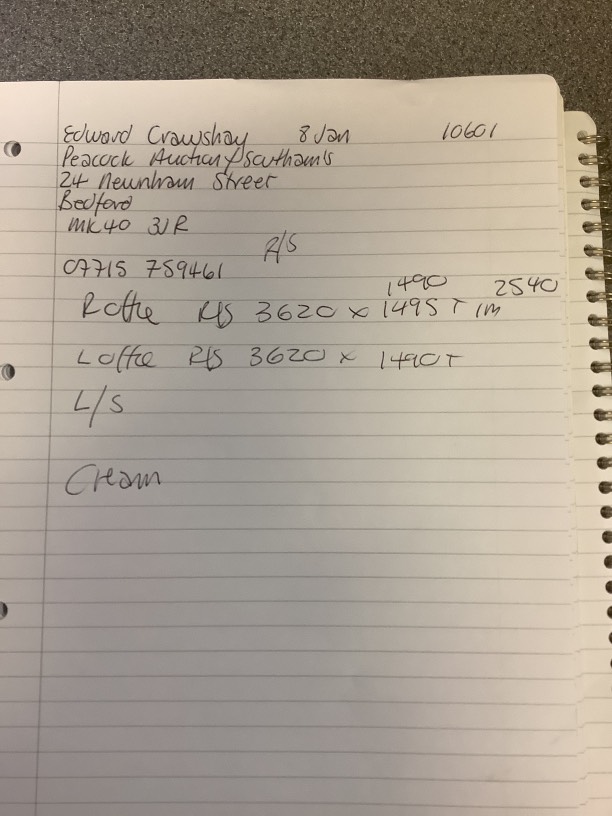 Edward Crawshay 8 Jan 10601
Peacock Auction / Southam's
24 Newnham Street
Bedford
MK40 3JR
R/S
07715 759461
1490 2540
R office R/S 3620 x 1495 T 1M
L office R/S 3620 x 1490 T
L/S
Cream